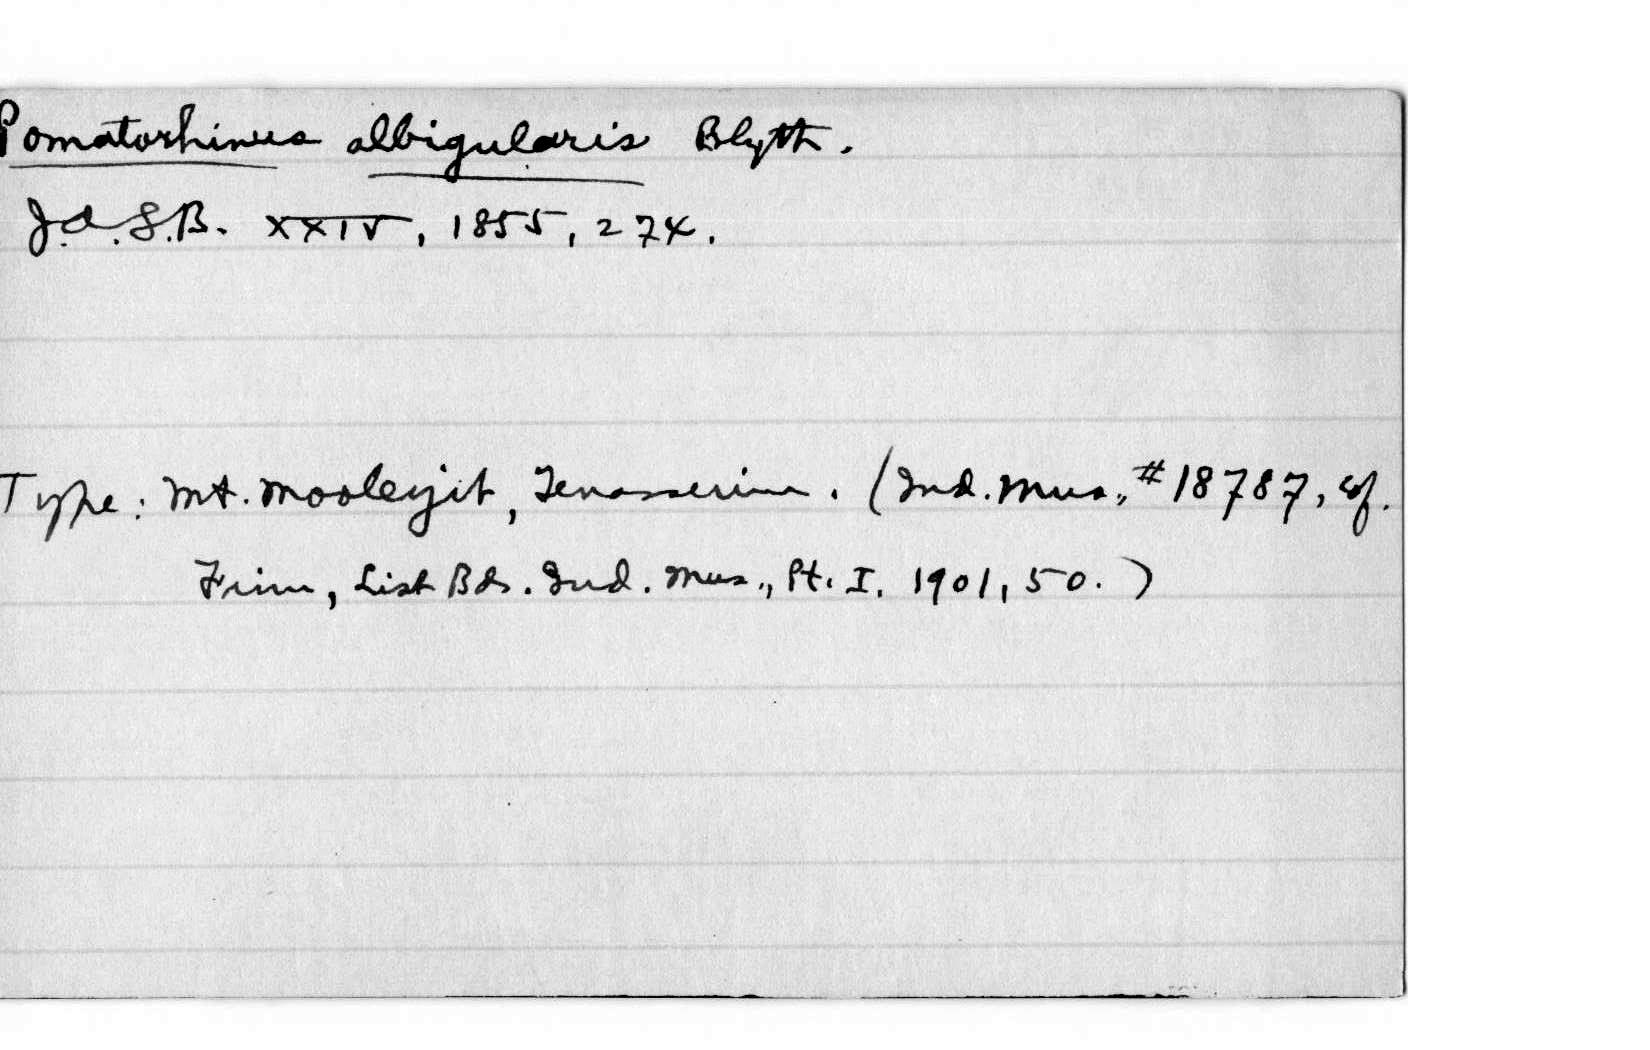 Pomatorhinus albigularis Blyth.
J.A.S.B. XXIV, 1855, 274.
Type: Mt. Mooleyit, Tenasserim. (Ind. Mus., #18787, cf.
Finn, List Bds. Ind. Mus., Pt. I. 1901, 50.)